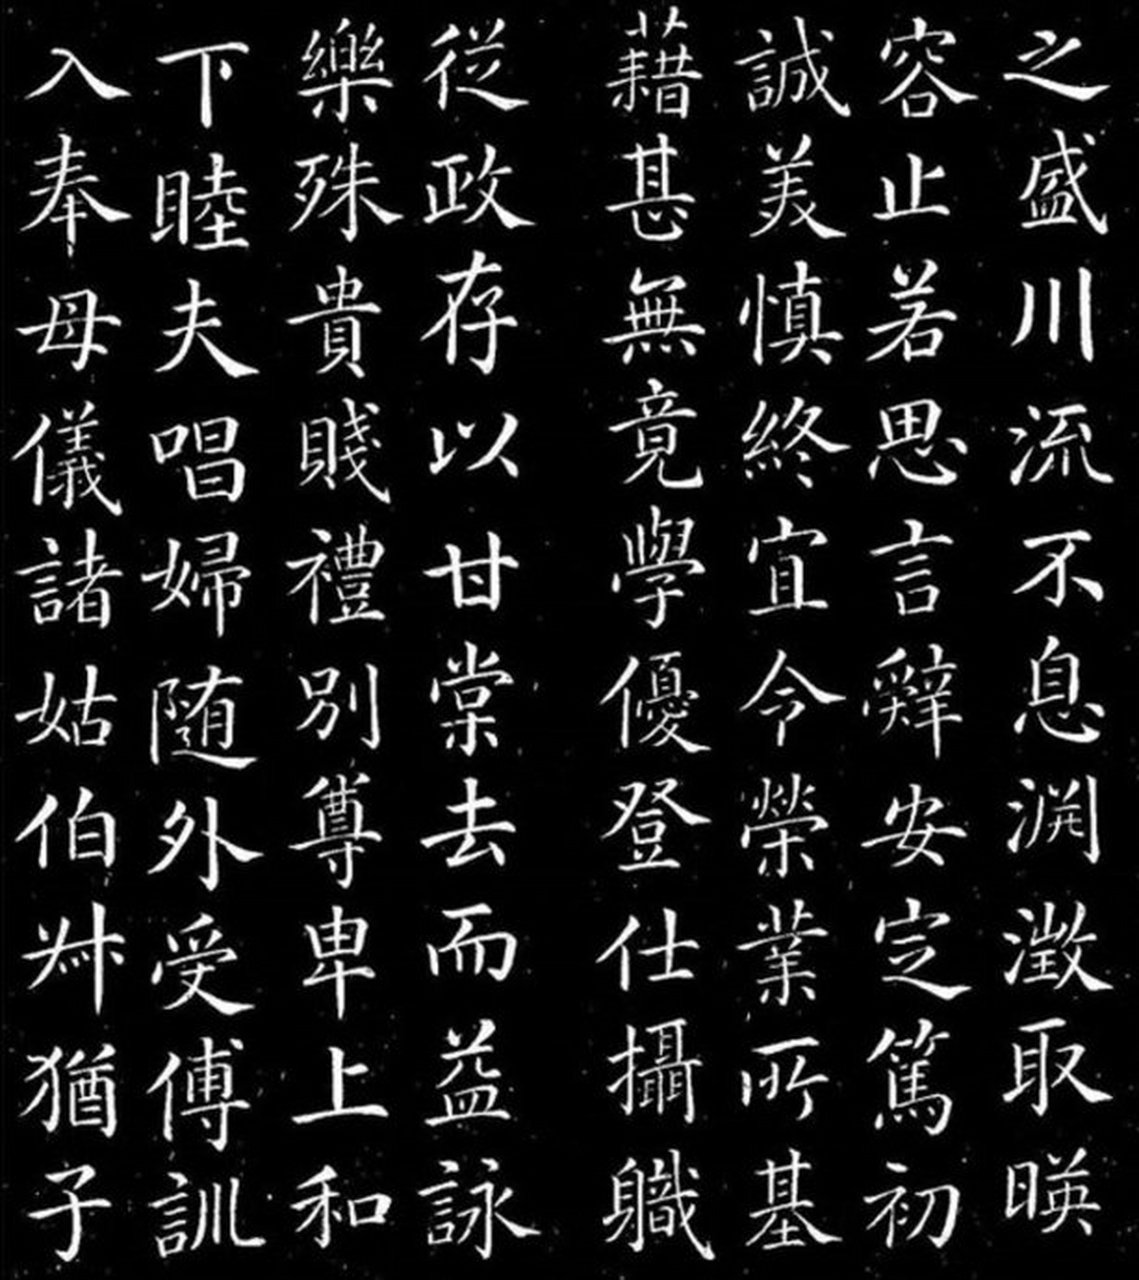 之盛川流不息渊澂取暎
容止若思言辤安定篤初
誠美慎終宜令榮業所基
藉甚無竟學優登仕攝職
從政存以甘棠去而益詠
樂殊貴賤禮別尊卑上和
下睦夫唱婦随外受傅訓
入奉母儀諸姑伯叔猶子